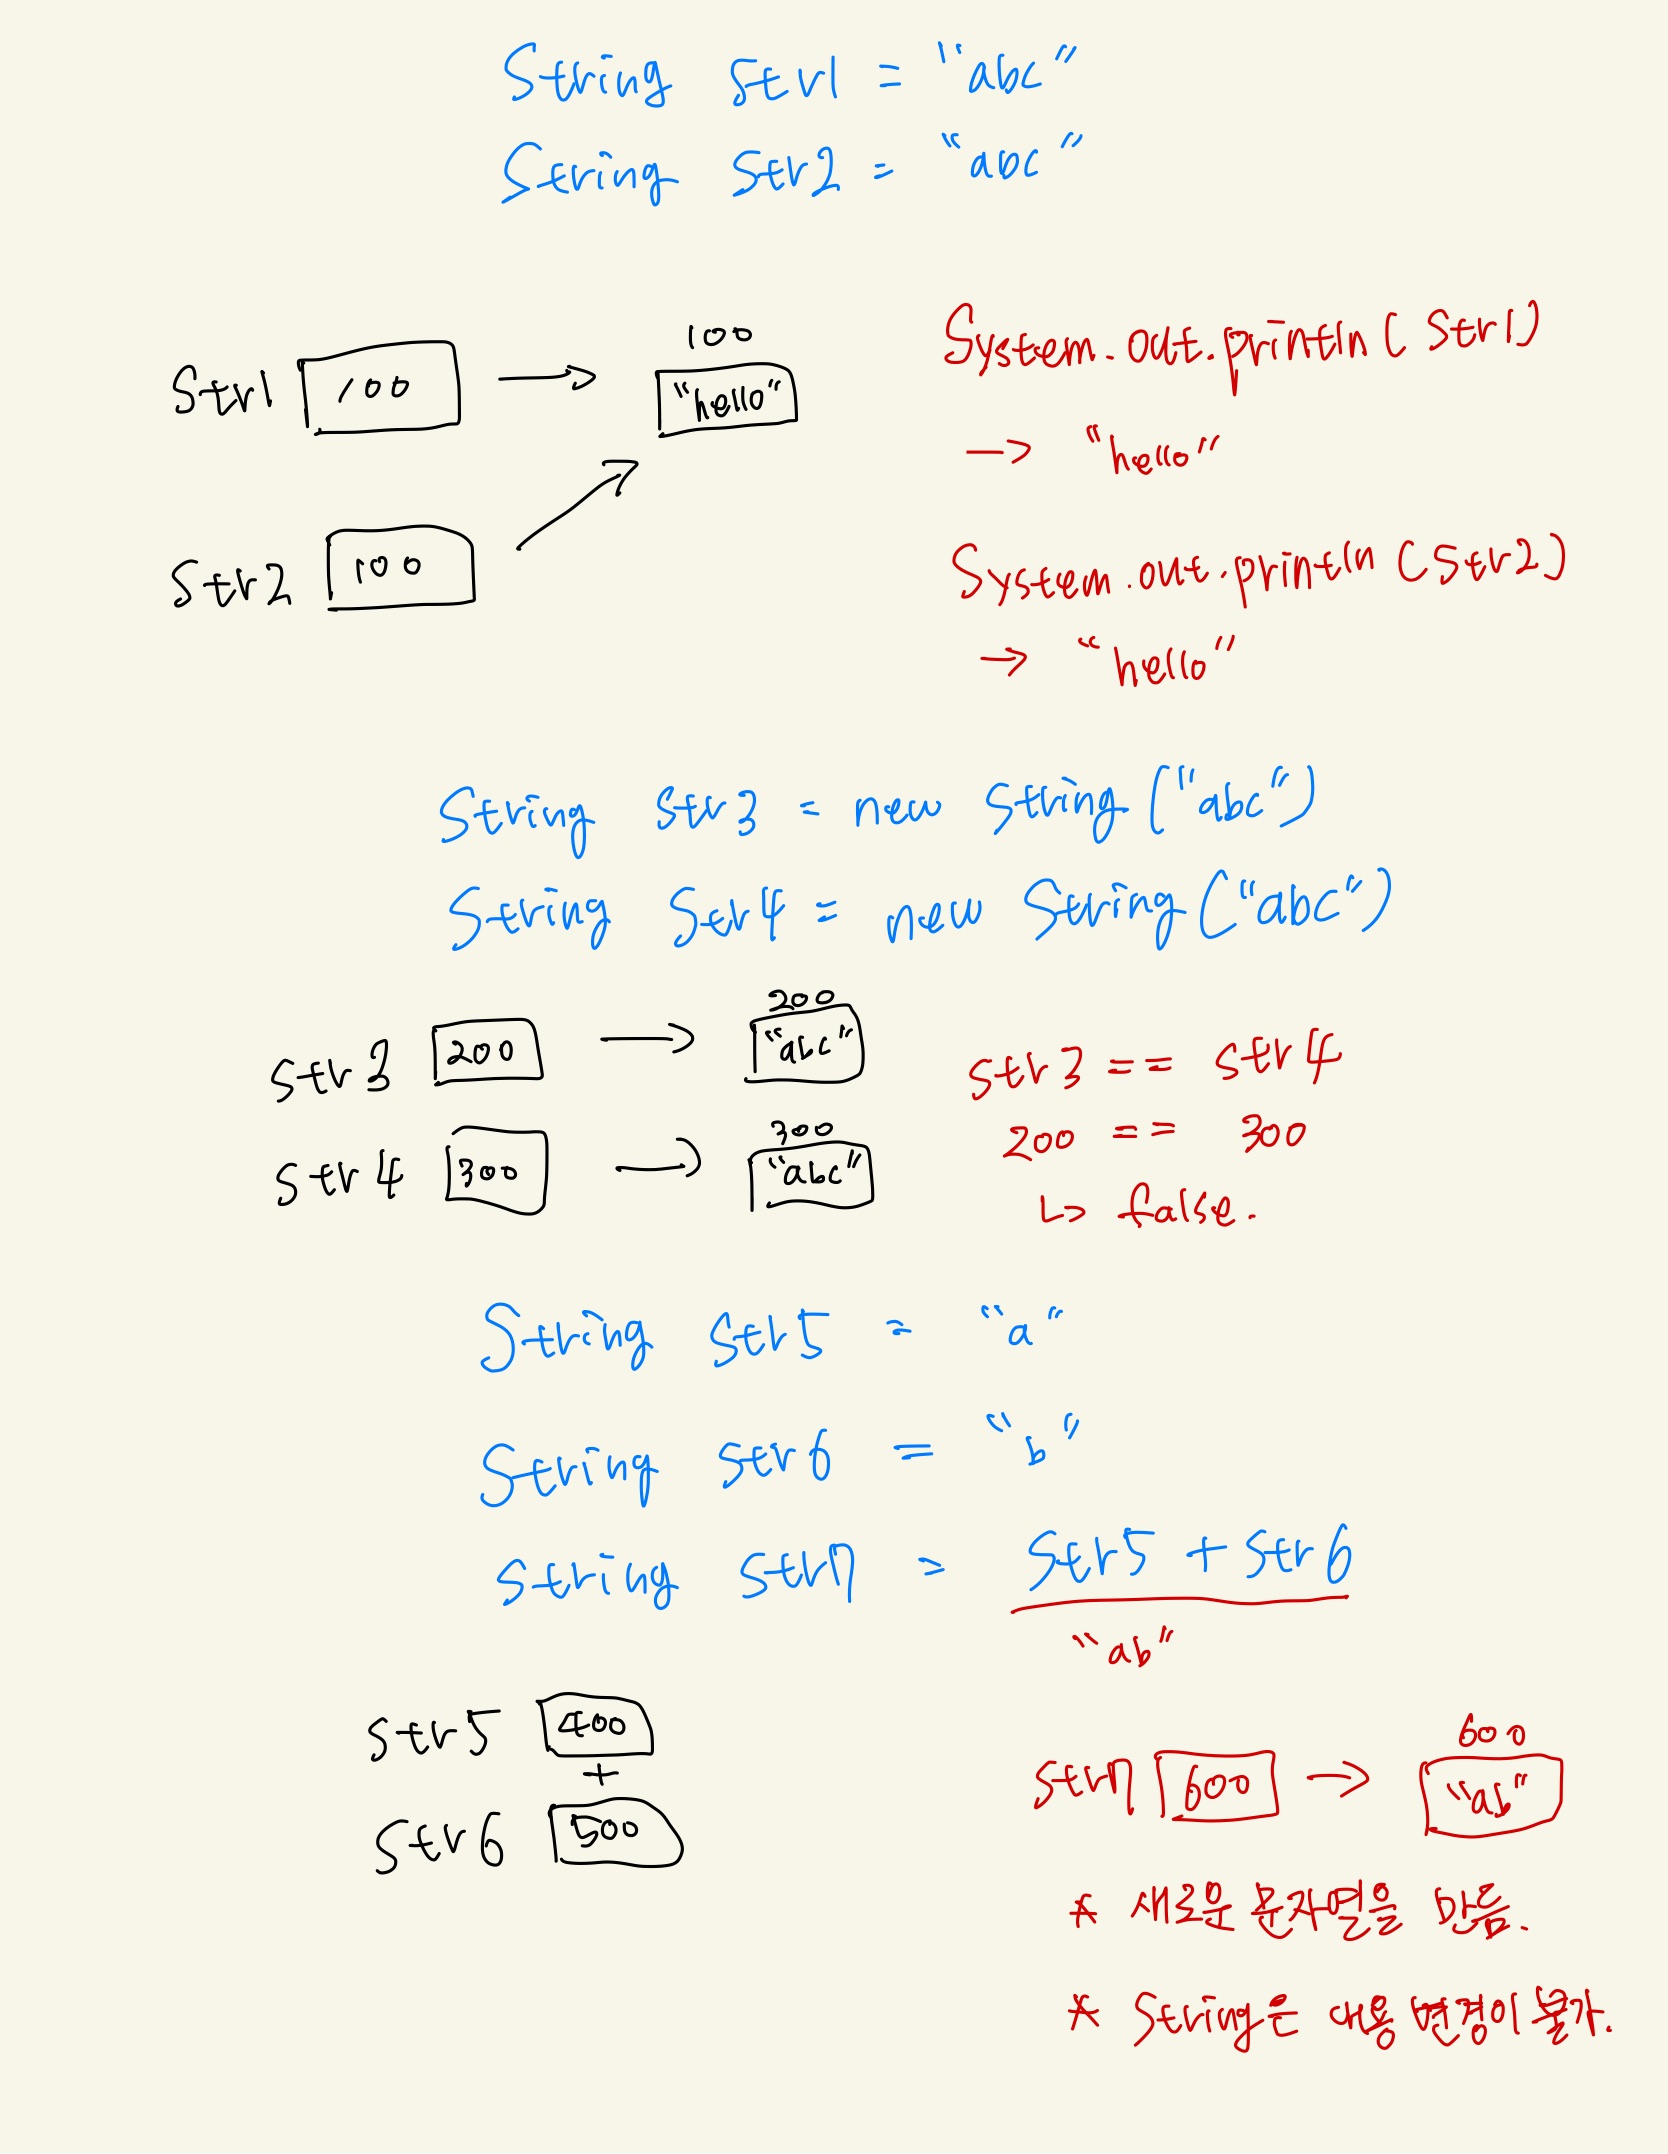 String str1 = "abc"
String str2 = "abc"
100
str1 100 → "hello"
System.out.println( str1)
→ "hello"
str2 100
System.out.println (str2)
→ "hello"
String str3 = new String ("abc")
String str4 = new String ("abc")
200
str3 200 → "abc"
str3 == str4
300
200 == 300
str4 300 → "abc"
↳ false.
String str5 = "a"
String str6 = "b"
string str7 = str5 + str6
"ab"
str5 400
+
str6 500
600
str7 600 → "ab"
* 새로운 문자열을 만듦.
* String은 내용 변경이 불가.